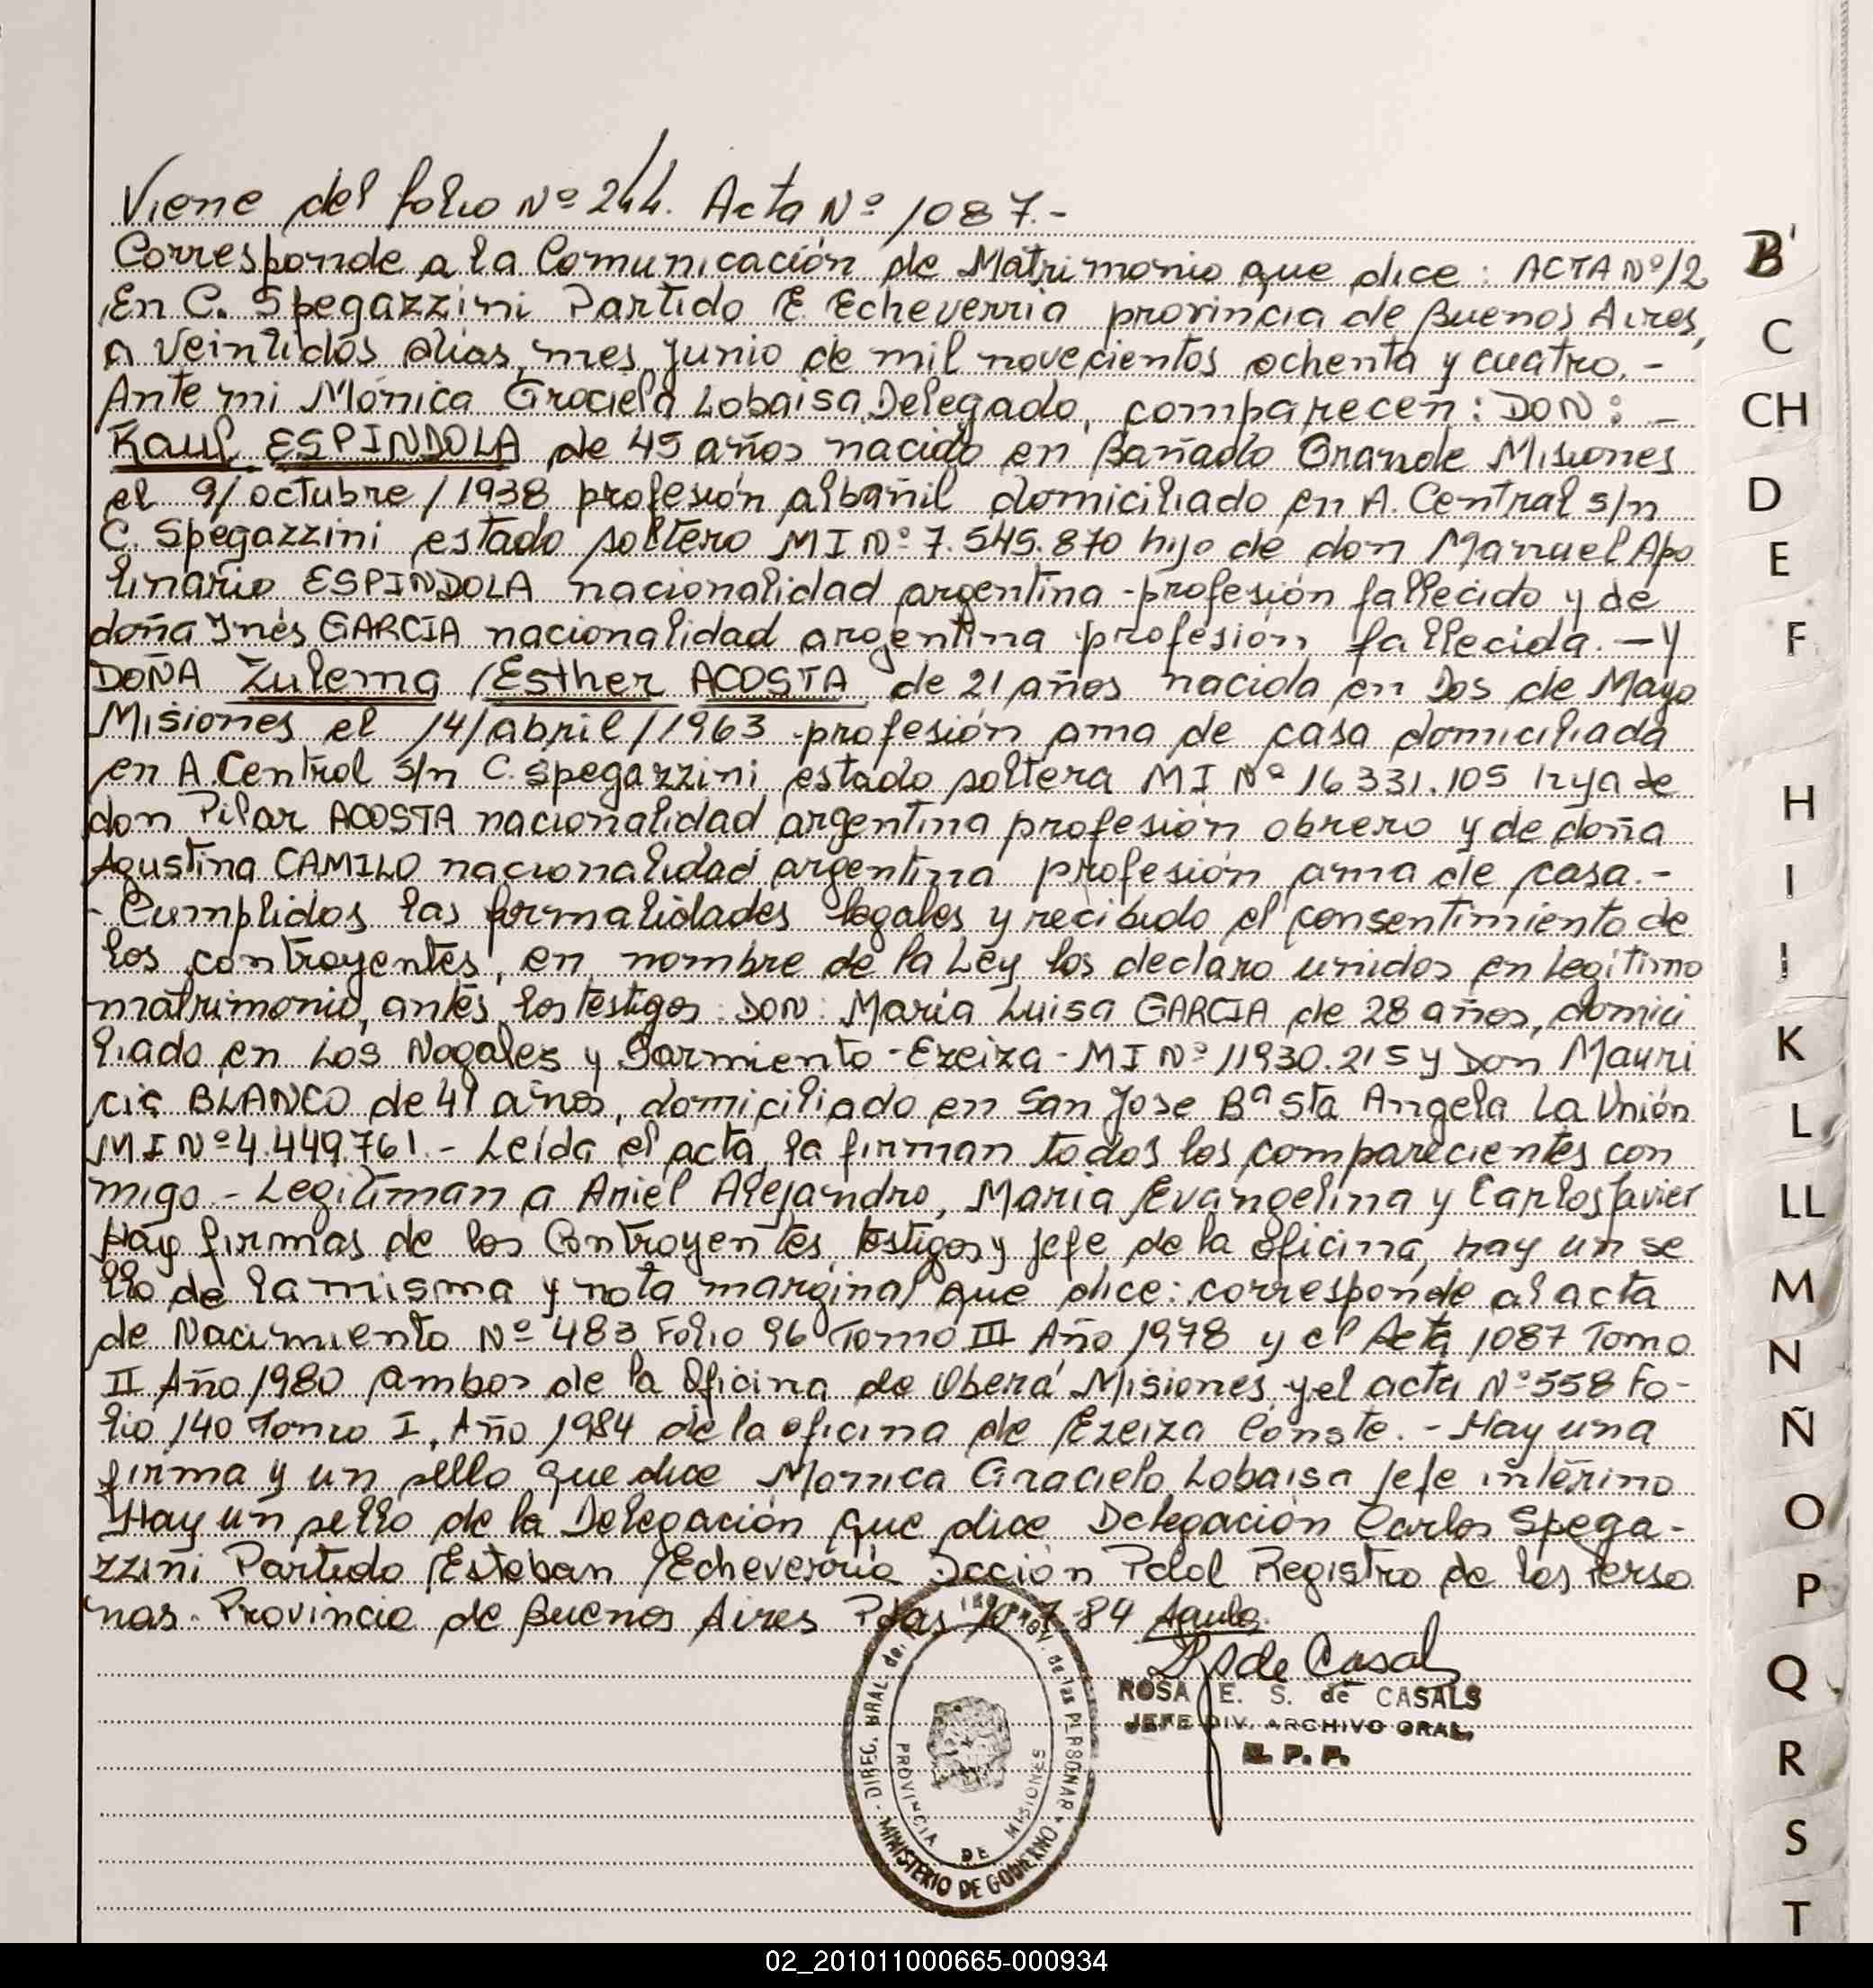 Viene del folio Nº 244. Acta Nº 1087.-
Corresponde a la Comunicación de Matrimonio que dice: ACTA Nº 12
En C. Spegazzini Partido E. Echeverria provincia de Buenos Aires,
a veintidós dias, mes junio de mil novecientos ochenta y cuatro.-
Ante mi Mónica Graciela Lobaisa Delegado, comparecen: DON: -
Raul ESPINDOLA de 45 años nacido en Bañado Grande Misiones
el 9/octubre/1938 profesión albañil domiciliado en A. Central s/n
C. Spegazzini estado soltero MI Nº 7.545.870 hijo de don Manuel Apo
linario ESPINDOLA nacionalidad argentina - profesión fallecido y de
doña Ynés GARCIA nacionalidad argentina profesión fallecida. - y
DOÑA Zulema Esther ACOSTA de 21 años nacida en Dos de Mayo
Misiones el 14/abril/1963 profesión ama de casa domiciliada
en A. Central s/n C. Spegazzini estado soltera MI Nº 16 331.105 hija de
don Pilar ACOSTA nacionalidad argentina profesión obrero y de doña
Agustina CAMILO nacionalidad argentina profesión ama de casa.-
- Cumplidos las formalidades legales y recibido el consentimiento de
los contrayentes, en nombre de la Ley los declaro unidos en Legítimo
matrimonio, antes los testigos: DON: María Luisa GARCIA de 28 años, domici
liado en Los Nogales y Sarmiento - Ezeiza - MI Nº 11930.215 y Don Mauri
cio BLANCO de 41 años, domiciliado en San Jose Bª Sta Angela La Unión
MI Nº 4.449.761.- Leída el acta la firman todos los comparecientes con
migo.- Legitiman a Ariel Alejandro, Maria Evangelina y Carlos Javier
Hay firmas de los Contrayentes, testigos y jefe de la oficina, hay un se
llo de la misma y nota marginal que dice: corresponde al acta
de Nacimiento Nº 483 Folio 96 Tomo III Año 1978 y el Acta 1087 Tomo
II Año 1980 ambos de la Oficina de Oberá Misiones y el acta Nº 558 Fo-
lio 140 Tomo I, Año 1984 de la oficina de Ezeiza Conste.- Hay una
firma y un sello que dice Monica Graciela Lobaisa Jefe intérino
Hay un sello de la Delegación que dice Delegación Carlos Spega-
zzini Partido Esteban Echeverria Dcción Pcial Registro de las Perso
nas. Provincia de Buenos Aires Pdas 10-7-84
R S de Casal
ROSA E. S. de CASALS
JEFE DIV. ARCHIVO GRAL.
R. P. P.
DIREC. GRAL. del de las PERSONAS
PROVINCIA DE MISIONES
MINISTERIO DE GOBIERNO
B
C
CH
D
E
F
H
I
J
K
L
LL
M
N
Ñ
O
P
Q
R
S
T
02_201011000665-000934